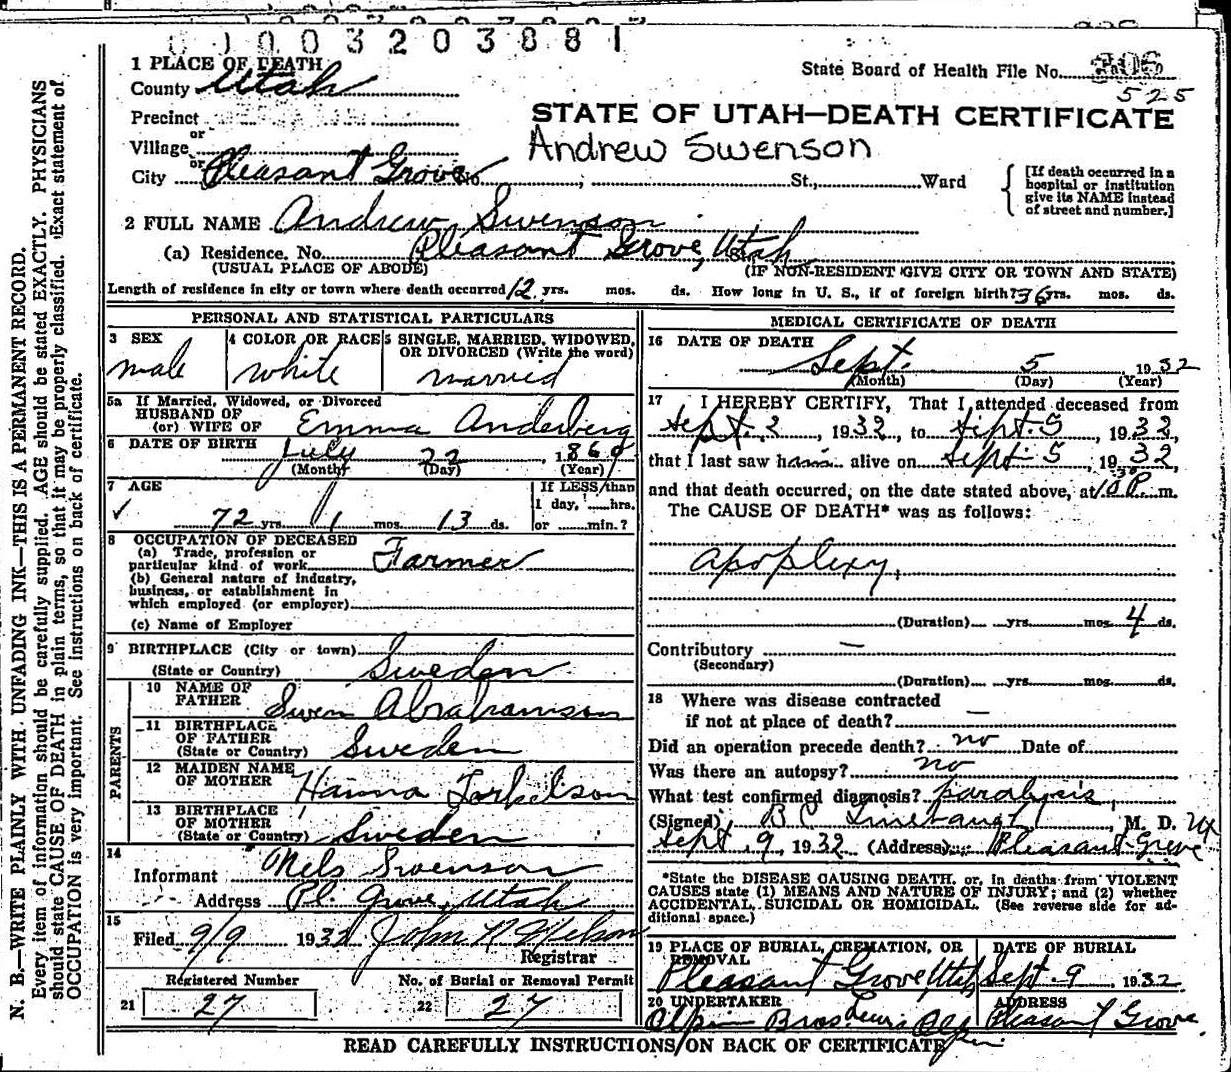 01003203881
1 PLACE OF DEATH
State Board of Health File No. 306
525
County Utah
STATE OF UTAH—DEATH CERTIFICATE
Precinct
or
Andrew Swenson
Village
or
City Pleasant Grove No. ; St., Ward
[If death occurred in a
hospital or institution
give its NAME instead
of street and number.]
2 FULL NAME Andrew Swenson
(a) Residence. No. Pleasant Grove, Utah
(USUAL PLACE OF ABODE) (IF NON-RESIDENT GIVE CITY OR TOWN AND STATE)
Length of residence in city or town where death occurred 12 yrs. mos. ds. How long in U. S., if of foreign birth? 36 yrs. mos. ds.
PERSONAL AND STATISTICAL PARTICULARS
3 SEX
male
4 COLOR OR RACE
white
5 SINGLE, MARRIED, WIDOWED,
OR DIVORCED (Write the word)
married
5a If Married, Widowed, or Divorced
HUSBAND OF
(or) WIFE OF Emma Anderberg
6 DATE OF BIRTH July 22, 1860
(Month) (Day) (Year)
7 AGE
72 yrs. 1 mos. 13 ds.
If LESS than
1 day, hrs.
or min.?
8 OCCUPATION OF DECEASED
(a) Trade, profession or
particular kind of work Farmer
(b) General nature of industry,
business, or establishment in
which employed (or employer)
(c) Name of Employer
9 BIRTHPLACE (City or town)
(State or Country) Sweden
PARENTS
10 NAME OF
FATHER Swen Abrahamson
11 BIRTHPLACE
OF FATHER
(State or Country) Sweden
12 MAIDEN NAME
OF MOTHER Hanna Torkelson
13 BIRTHPLACE
OF MOTHER
(State or Country) Sweden
14
Informant Nels Swenson
Address Pl. Grove, Utah
15
Filed 9/9 1932 John N Nelson
Registrar
Registered Number
21 27
No. of Burial or Removal Permit
22 27
MEDICAL CERTIFICATE OF DEATH
16 DATE OF DEATH
Sept. 5, 1932
(Month) (Day) (Year)
17 I HEREBY CERTIFY, That I attended deceased from
Sept. 2, 1932, to Sept. 5, 1932,
that I last saw him alive on Sept. 5, 1932,
and that death occurred, on the date stated above, at 10 30 P. m.
The CAUSE OF DEATH* was as follows:
apoplexy,
(Duration) yrs. mos. 4 ds.
Contributory —
(Secondary)
(Duration) yrs. mos. ds.
18 Where was disease contracted
if not at place of death? —
Did an operation precede death? no Date of
Was there an autopsy? no
What test confirmed diagnosis? paralysis,
(Signed) B C , M. D.
Sept. 9, 1932 (Address) Pleasant Grove
*State the DISEASE CAUSING DEATH, or, in deaths from VIOLENT
CAUSES state (1) MEANS AND NATURE OF INJURY; and (2) whether
ACCIDENTAL, SUICIDAL OR HOMICIDAL. (See reverse side for ad-
ditional space.)
19 PLACE OF BURIAL, CREMATION, OR
REMOVAL
Pleasant Grove, Utah
DATE OF BURIAL
Sept. 9 1932
20 UNDERTAKER
Olpin Bros Lewis Olpin
ADDRESS
Pleasant Grove.
READ CAREFULLY INSTRUCTIONS ON BACK OF CERTIFICATE
N. B.—WRITE PLAINLY WITH UNFADING INK—THIS IS A PERMANENT RECORD.
Every item of information should be carefully supplied. AGE should be stated EXACTLY. PHYSICIANS
should state CAUSE OF DEATH in plain terms, so that it may be properly classified. Exact statement of
OCCUPATION is very important. See instructions on back of certificate.